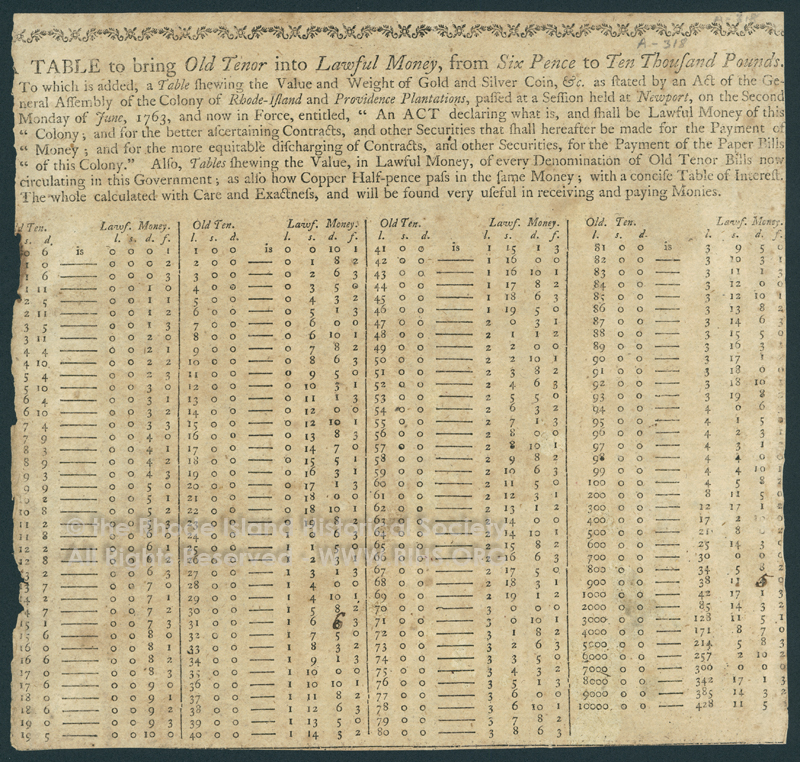 A-318
TABLE to bring Old Tenor into Lawful Money, from Six Pence to Ten Thouſand Pounds.
To which is added, a Table ſhewing the Value and Weight of Gold and Silver Coin, &c. as ſtated by an Act of the Ge-
neral Aſſembly of the Colony of Rhode-Iſland and Providence Plantations, paſſed at a Seſſion held at Newport, on the Second
Monday of June, 1763, and now in Force, entitled, “ An ACT declaring what is, and ſhall be Lawful Money of this
“ Colony; and for the better aſcertaining Contracts, and other Securities that ſhall hereafter be made for the Payment of
“ Money; and for the more equitable diſcharging of Contracts, and other Securities, for the Payment of the Paper Bills
“ of this Colony.” Alſo, Tables ſhewing the Value, in Lawful Money, of every Denomination of Old Tenor Bills now
circulating in this Government; as alſo how Copper Half-pence paſs in the ſame Money; with a conciſe Table of Intereſt.
The whole calculated with Care and Exactneſs, and will be found very uſeful in receiving and paying Monies.
d Ten. Lawf. Money.
s. d. l. s. d. f.
0 6 is 0 0 0 1
1 0 — 0 0 0 2
1 6 — 0 0 0 3
1 11 — 0 0 1 0
2 5 — 0 0 1 1
2 11 — 0 0 1 2
3 5 — 0 0 1 3
3 11 — 0 0 2 0
4 4 — 0 0 2 1
4 10 — 0 0 2 2
5 4 — 0 0 2 3
5 10 — 0 0 3 0
6 4 — 0 0 3 1
6 10 — 0 0 3 2
7 4 — 0 0 3 3
7 9 — 0 0 4 0
8 3 — 0 0 4 1
8 9 — 0 0 4 2
9 3 — 0 0 4 3
9 9 — 0 0 5 0
0 2 — 0 0 5 1
10 8 — 0 0 5 2
11 2 — 0 0
11 8 — 0 0
12 2 — 0 0 6
12 8 — 0 0 6
3 2 — 0 0 6 3
7 — 0 0 7 0
2 — 0 0 7 1
4 7 — 0 0 7 2
15 1 — 0 0 7 3
15 6 — 0 0 8 0
16 0 — 0 0 8 1
16 6 — 0 0 8 2
17 0 — 0 0 8 3
17 6 — 0 0 9 0
18 0 — 0 0 9 1
18 6 — 0 0 9 2
19 0 — 0 0 9 3
19 5 — 0 0 10 0
Old Ten. Lawf. Money.
l. s. d. l. s. d. f.
1 0 0 is 0 0 10 1
2 0 0 — 0 1 8 2
3 0 0 — 0 2 6 3
4 0 0 — 0 3 5 0
5 0 0 — 0 4 3 2
6 0 0 — 0 5 1 3
7 0 0 — 0 6 0 0
8 0 0 — 0 6 10 1
9 0 0 — 0 7 8 2
10 0 0 — 0 8 6 3
11 0 0 — 0 9 5 0
12 0 0 — 0 10 3 1
13 0 0 — 0 11 1 3
14 0 0 — 0 12 0 0
15 0 0 — 0 12 10 1
16 0 0 — 0 13 8 3
17 0 0 — 0 14 7 0
18 0 0 — 0 15 5 1
19 0 0 — 0 16 3 1
20 0 0 — 0 17 1 3
21 0 0 — 0 18 0 0
22 0 0 — 0 18 10 1
0 0 — 0 19 8 2
0 0 — 1 0 6
0 0 — 1 1 0
26 0 0 — 1 2 3
27 0 0 — 1 3 1 3
28 0 0 — 1 4 0 0
29 0 0 — 1 4 10 1
30 0 0 — 1 5 8 2
31 0 0 — 1 6 6 3
32 0 0 — 1 7 5 0
33 0 0 — 1 8 3 2
34 0 0 — 1 9 1 3
35 0 0 — 1 10 0 0
36 0 0 — 1 10 10 1
37 0 0 — 1 11 8 2
38 0 0 — 1 12 6 3
39 0 0 — 1 13 5 0
40 0 0 — 1 14 5 2
Old Ten. Lawf. Money.
l. s. d. l. s. d. f.
41 0 0 is 1 15 1 3
42 0 0 — 1 16 0 0
43 0 0 — 1 16 10 1
44 0 0 — 1 17 8 2
45 0 0 — 1 18 6 3
46 0 0 — 1 19 5 0
47 0 0 — 2 0 3 1
48 0 0 — 2 1 1 2
49 0 0 — 2 2 0 0
50 0 0 — 2 2 10 1
51 0 0 — 2 3 8 2
52 0 0 — 2 4 6 3
53 0 0 — 2 5 5 0
54 0 0 — 2 6 3 2
55 0 0 — 2 7 1 3
56 0 0 — 2 8 0 0
57 0 0 — 2 8 10 1
58 0 0 — 2 9 8 2
59 0 0 — 2 10 6 3
60 0 0 — 2 11 5 0
61 0 0 — 2 12 3 1
62 0 0 — 2 13 1 2
63 0 0 — 2 14 0 0
64 0 0 — 2 14 10 1
65 0 0 — 2 15 8 2
66 0 0 — 2 16 6 3
67 0 0 — 2 17 5 0
68 0 0 — 2 18 3 1
69 0 0 — 2 19 1 2
70 0 0 — 3 0 0 0
71 0 0 — 3 0 10 1
72 0 0 — 3 1 8 2
73 0 0 — 3 2 6 3
74 0 0 — 3 3 5 0
75 0 0 — 3 4 3 2
76 0 0 — 3 5 1 3
77 0 0 — 3 6 0 0
78 0 0 — 3 6 10 1
79 0 0 — 3 7 8 2
80 0 0 — 3 8 6 3
Old. Ten. Lawf. Money.
l. s. d. l. s. d. f.
81 0 0 is 3 9 5 0
82 0 0 — 3 10 3 1
83 0 0 — 3 11 1 3
84 0 0 — 3 12 0 0
85 0 0 — 3 12 10 1
86 0 0 — 3 13 8 2
87 0 0 — 3 14 6 3
88 0 0 — 3 15 5 0
89 0 0 — 3 16 3
90 0 0 — 3 17 1
91 0 0 — 3 18 0
92 0 0 — 3 18 10
93 0 0 — 3 19 8
94 0 0 — 4 0 6
95 0 0 — 4 1 5 0
96 0 0 — 4 2 3 1
97 0 0 — 4 3 1
98 0 0 — 4 4 0 0
99 0 0 — 4 4 10 1
100 0 0 — 4 5 8 2
200 0 0 — 8 11 5 0
300 0 0 — 12 17 1
400 0 0 — 17 2
500 0 0 — 21 8
600 0 0 — 25 14 3 0
700 0 0 — 30 0 0 0
800 0 0 — 34 5 8
900 0 0 — 38 11 5 0
1000 0 0 — 42 17 1 3
2000 0 0 — 85 14 3 2
3000 0 0 — 128 11 5 1
4000 0 0 — 171 8 7 0
5000 0 0 — 214 5 8 3
6000 0 0 — 257 2 10 2
7000 0 0 — 300 0 0 0
8000 0 0 — 342 17 1 3
9000 0 0 — 385 14 3 2
10000 0 0 — 428 11 5
© The Rhode Island Historical Society
All Rights Reserved WWW.RIHS.ORG